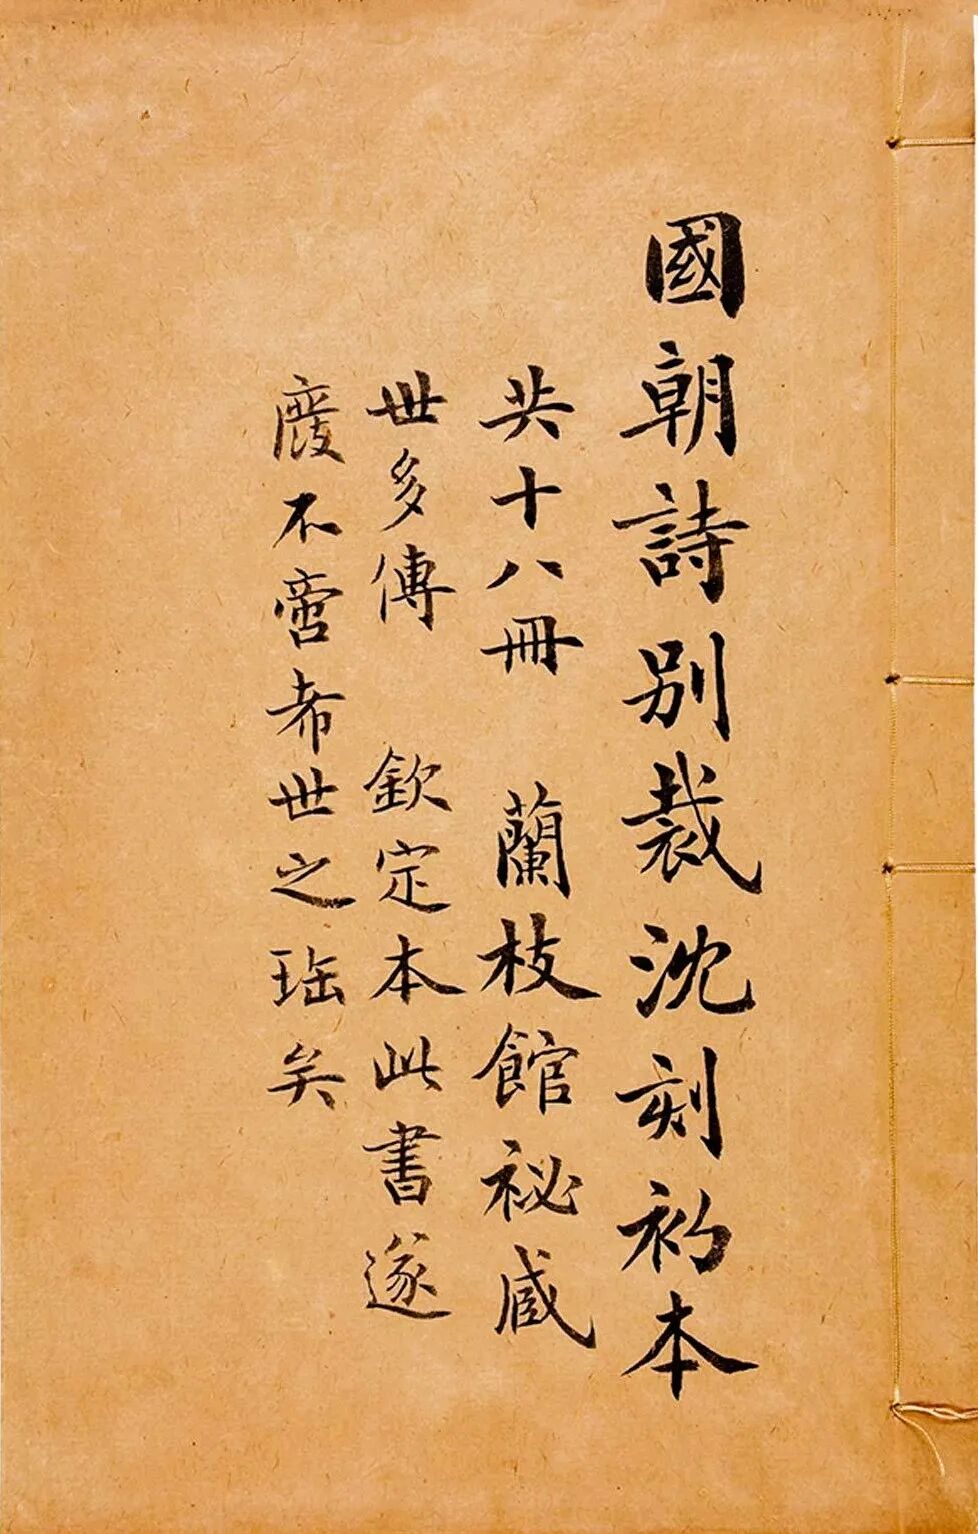 國朝詩別裁沈刻初本
共十八冊 蘭枝館祕藏
世多傳 欽定本此書遂
廢不啻希世之珤矣